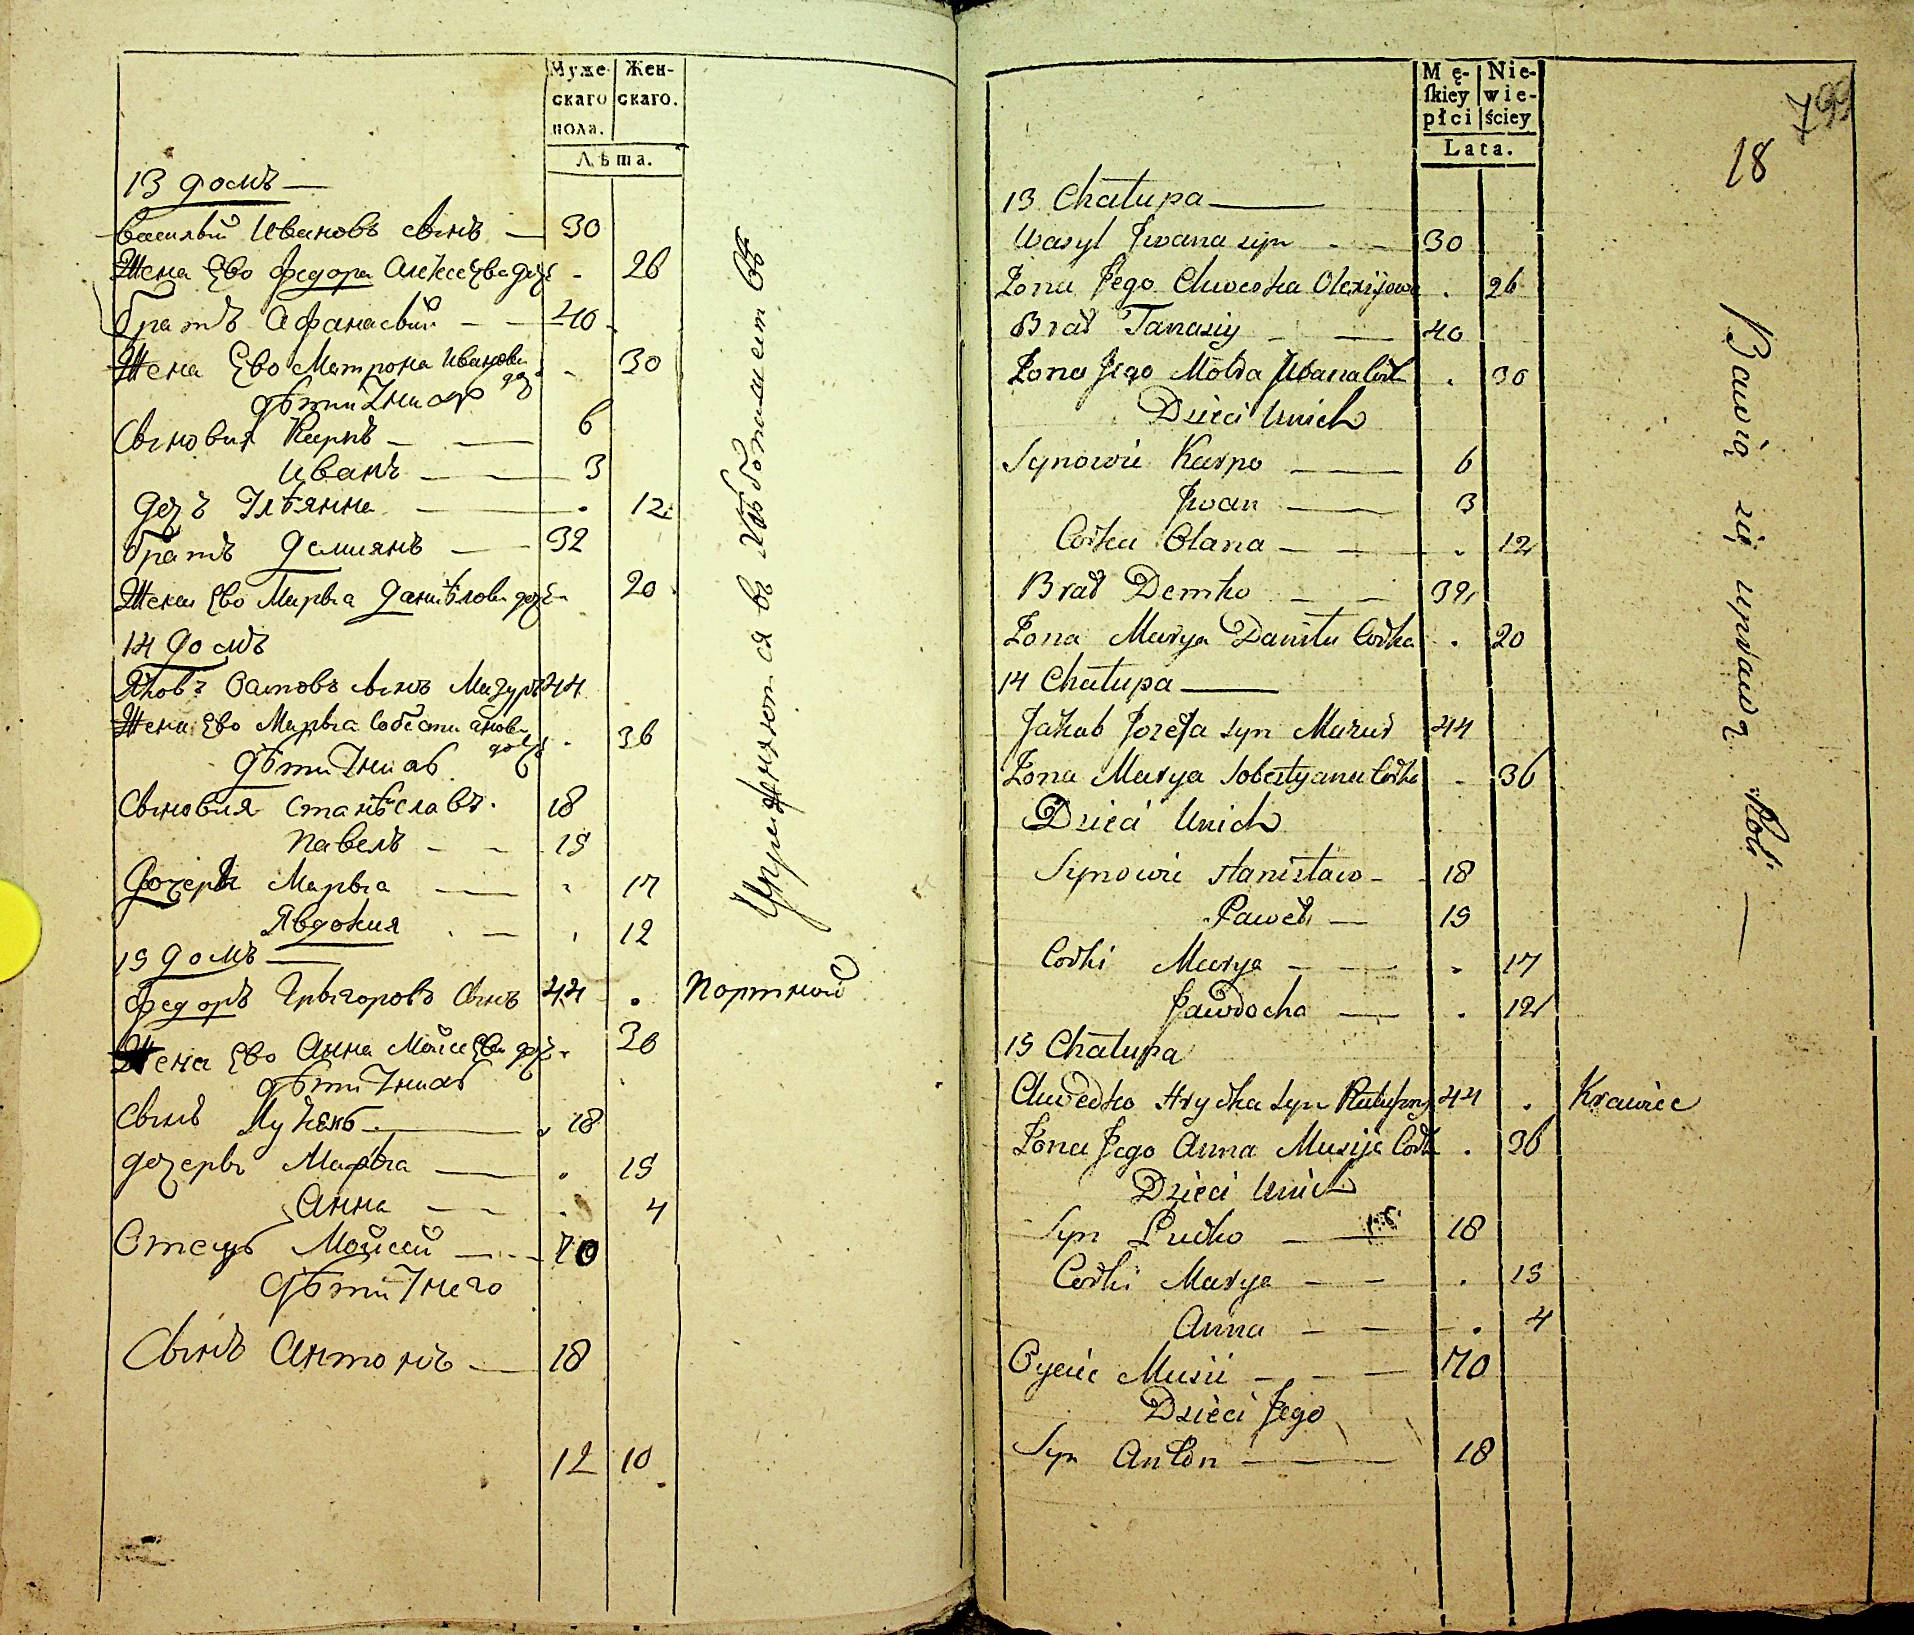 Мужескаго пола. Женскаго.
Лѣта.
13 домъ
Василый Ивановъ сынъ — 30
Жена Ево Федора Алексеева доч: . 26
братъ Афанасый — 40
Жена Ево Матрона Иванова доч: . 30
дѣти Унихъ
Сыновия Карпъ — 6
Иванъ — 3
дочъ Улѣянна — . 12
братъ Демиянъ — 32
Жена Ево Марыа Данѣлова доч: 20
14 домъ
Яковъ Осиповъ сынъ Мазуръ 44
Жена Ево Марыа Собестиянова дочъ . 36
дѣти Унихъ
Сыновия Станѣславъ. 18
Павелъ — 15
Дочеры Марыа — . 17
Явдокия . — . 12
15 домъ
Федоръ Грыгоровъ Сынъ 44 . Портной
Жена Ево Анна Моисеева доч: 36
дѣти Унихъ
Сынъ Луцекъ . 18
дочеры Марыа — . 15
Анна — . 4
Отецъ Мойсей — 70
дѣти Унего
Сынъ Антонъ — 18
12 10
Упражняются въ
Męſkiey płci Niewieściey
Lata.
799
18
13 Chałupa
Wasyl Jwana syn — 30
Żona Jego Chweska Olexijowa . 26
Brat Tanasiy — 40
Żona Jego Motra Jwana Cork . 30
Dzieci Unich
Synowie Karpo — 6
Jwan — 3
Corka Olana — . 12
Brat Demko — 32
Żona Marya Daniłu Corka . 20
14 Chałupa
Jakub Jozefa syn Mazur 44
Żona Marya Sobestyana Corka . 36
Dzieci Unich
Synowie Stanisław — 18
Paweł — 15
Corki Marya — . 17
Jawdocha — . 12
15 Chałupa
Chwedko Hryćka syn 44 . Krawiec
Żona Jego Anna Musija Cork . 36
Dzieci Unich
Syn Lucko — 18
Corki Marya — . 15
Anna — . 4
Oyciec Musii — 70
Dzieci Jego
Syn Anton — 18
Bawią się uprawą Roli —